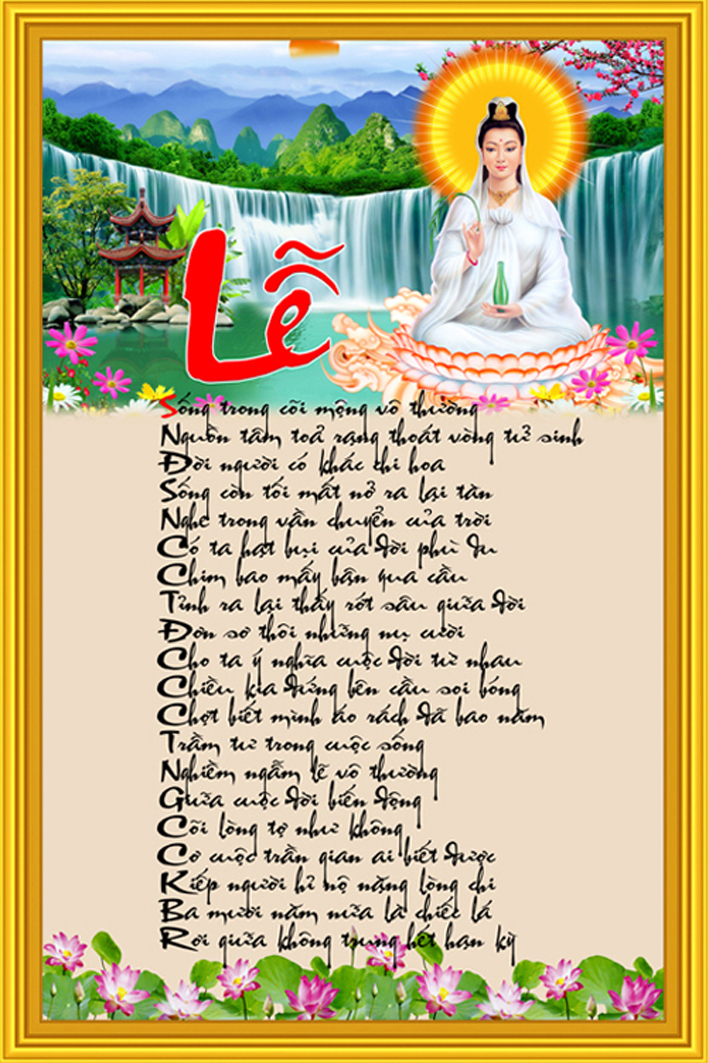 Lễ
Sống trong cõi mộng vô thường
Nguồn tâm toả rạng thoát vòng tử sinh
Đời người có khác chi hoa
Sống còn tối mất nở ra lại tàn
Nghe trong vần chuyển của trời
Có ta hạt bụi của đời phù du
Chim bao mấy bận qua cầu
Tỉnh ra lại thấy rớt sâu giữa đời
Đơn sơ thôi những nụ cười
Cho ta ý nghĩa cuộc đời từ nhau
Chiều kia đứng bên cầu soi bóng
Chợt biết mình áo rách đã bao năm
Trầm tư trong cuộc sống
Nghiềm ngẫm lẽ vô thường
Giữa cuộc đời biến động
Cõi lòng tợ như không
Cơ cuộc trần gian ai biết được
Kiếp người hỉ nộ nặng lòng chi
Ba mươi năm nữa là chiếc lá
Rơi giữa không trung hết hạn kỳ